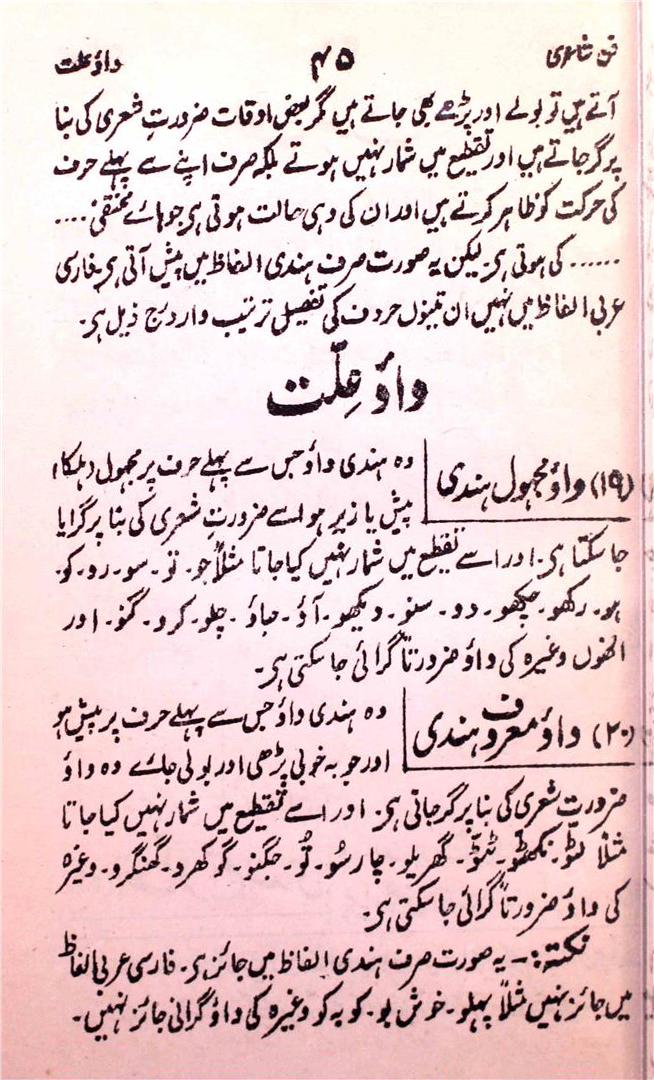 فن شاعری ۴۵ واؤ علت
آتے ہیں تو بولے اور پڑھے بھی جاتے ہیں مگر بعض اوقات ضرورتِ شعری کی بنا
پر گر جاتے ہیں اور تقطیع میں شمار نہیں ہوتے بلکہ صرف اپنے سے پہلے حرف
کی حرکت کو ظاہر کرتے ہیں اور ان کی وہی حالت ہوتی ہی جو ہائے مختفی ....
...... کی ہوتی ہی۔ لیکن یہ صورت صرف ہندی الفاظ میں پیش آتی ہی فارسی
عربی الفاظ میں نہیں ان تینوں حروف کی تفصیل ترتیب وار درج ذیل ہی۔
واؤ عِلّت
(۱۹) واؤ مجہول ہندی
وہ ہندی واؤ جس سے پہلے حرف پر مجہول (ہلکا)
پیش یا زبر ہو اسے ضرورتِ شعری کی بنا پر گرایا
جا سکتا ہی۔ اور اسے تقطیع میں شمار نہیں کیا جاتا مثلاً جو۔ تو۔ سو۔ رو۔ کو۔
ہو۔ رکھو۔ چکھو۔ دو۔ سنو۔ دیکھو۔ آؤ۔ جاؤ۔ چلو۔ کرو۔ گنو۔ اور
الخوں وغیرہ کی واؤ ضرورتاً گرائی جا سکتی ہی۔
(۲۰) واؤ معروف ہندی
وہ ہندی واؤ جس سے پہلے حرف پر پیش ہو
اور جو بہ خوبی پڑھی اور بولی جائے وہ واؤ
ضرورتِ شعری کی بنا پر گر جاتی ہی۔ اور اسے تقطیع میں شمار نہیں کیا جاتا
مثلاً لٹّو۔ نکھٹّو۔ ٹٹّو۔ گھریلو۔ چارسُو۔ تُو۔ جگنو۔ گوکھرو۔ گھنگرو۔ وغیرہ
کی واؤ ضرورتاً گرائی جا سکتی ہی۔
نکتہ:- یہ صورت صرف ہندی الفاظ میں جائز ہی۔ فارسی عربی الفاظ
میں جائز نہیں مثلاً پہلو۔ خوش بو۔ کو بہ کو وغیرہ کی واؤ گرانی جائز نہیں۔